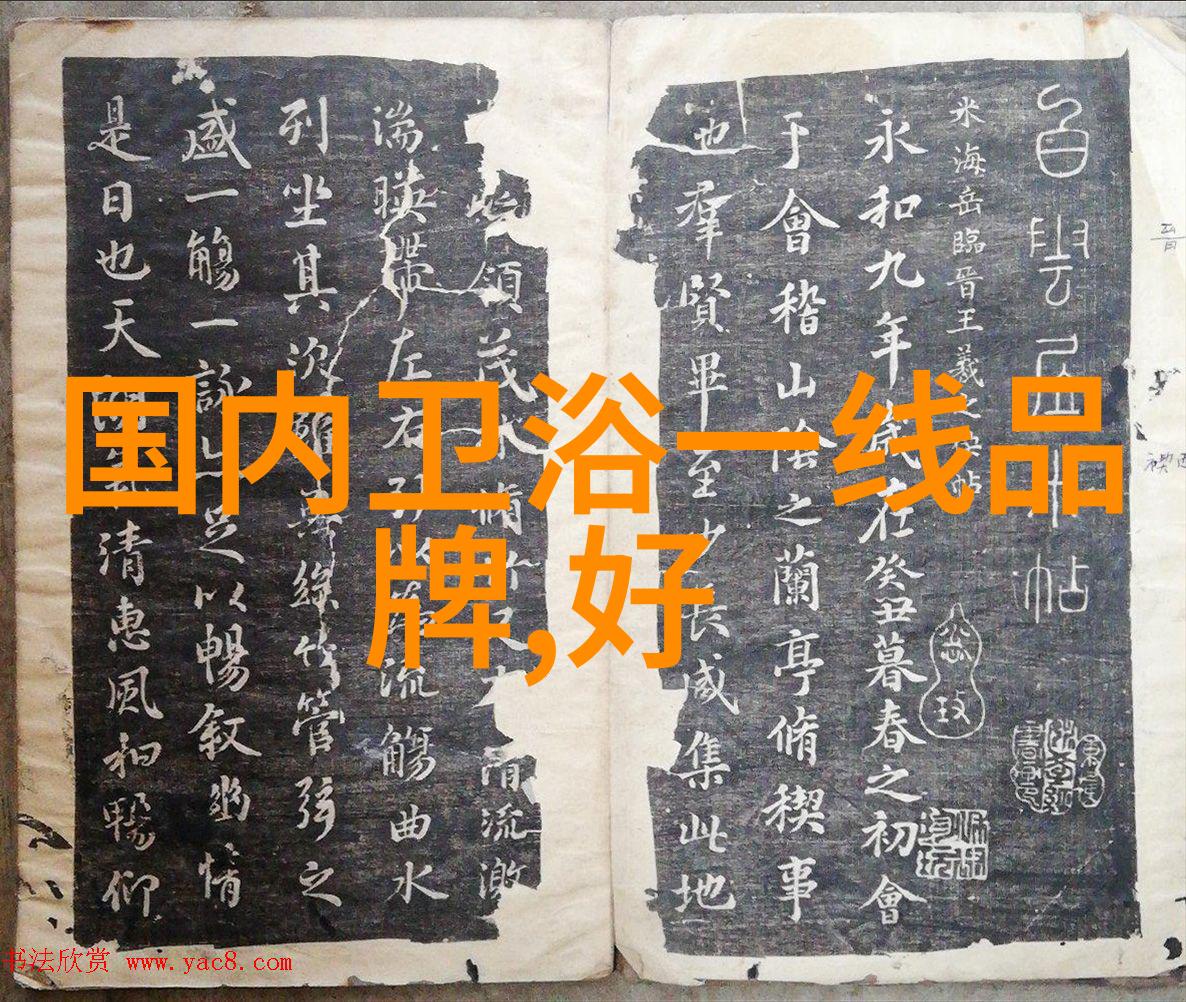 国内卫浴一线品
牌,好
米海岳臨晉王羲之
永和九年歲在癸丑暮春之初會
于會稽山陰之蘭亭脩稧事
也羣賢畢至少長咸集此地
領茂
清流激
湍暎帶左右
流觴曲水
列坐其次雖無絲竹管弦之
盛一觴一詠足以暢敘幽情
是日也天
清惠風和暢仰
书法欣赏 www.yac8.com